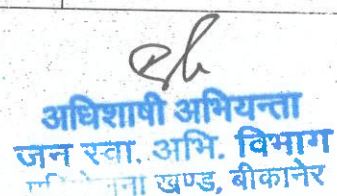 अधिशाषी अभियन्ता
जन स्वा. अभि. विभाग
खण्ड, बीकानेर